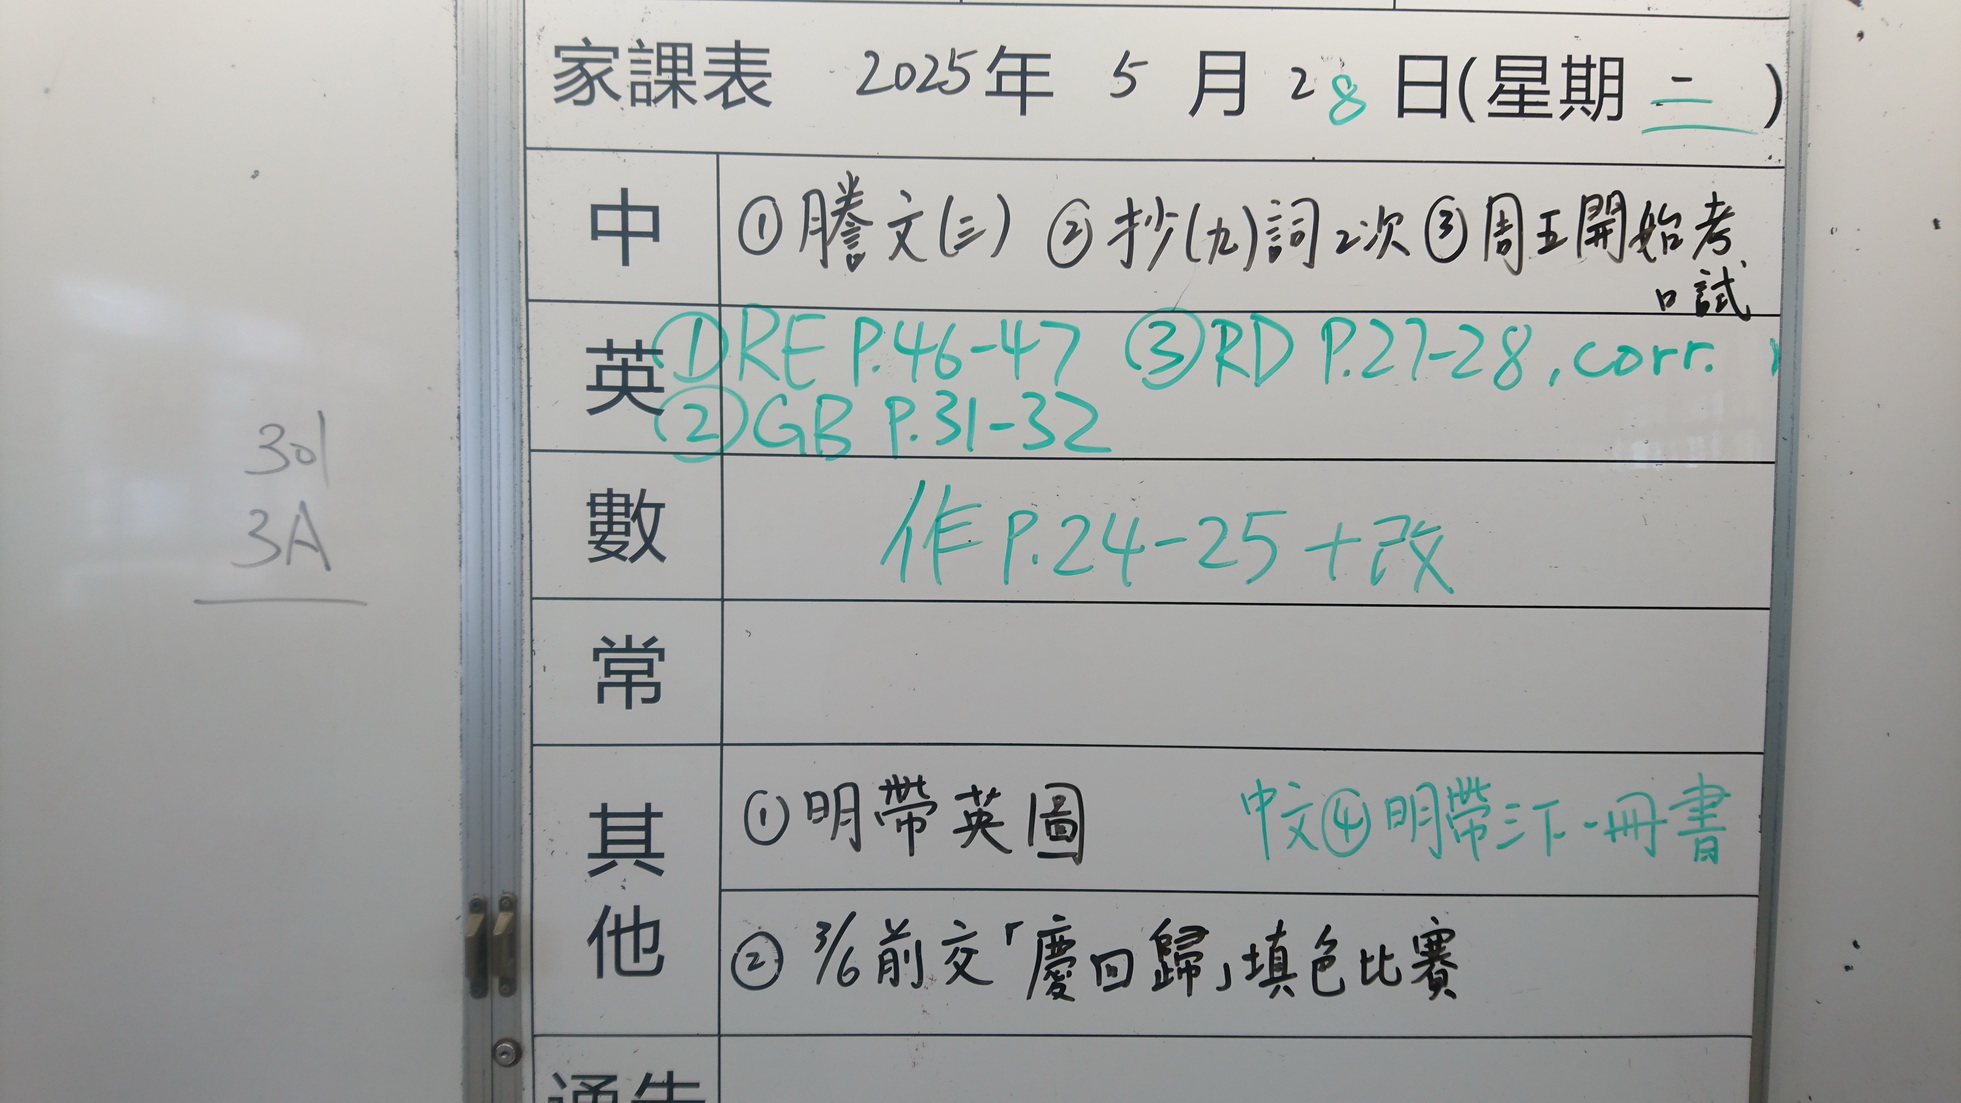 家課表 2025年 5 月 28 日(星期三)
中 ①謄文(三) ②抄(九)詞2次 ③周五開始考
口試
英 ①RE P.46-47 ③RD P.27-28, corr.
②GB P.31-32
數 作P.24-25+改
常
其他
①明帶英圖 中文④明帶三下一冊書
②3/6前交「慶回歸」填色比賽
通告
301
3A